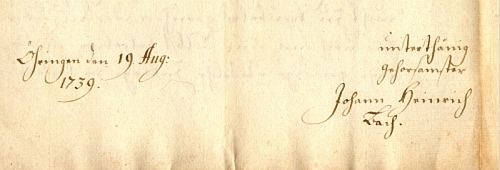 Öhringen den 19. Aug:
1739.
unterthänig
gehorsamster
Johann Heinrich
Bach.